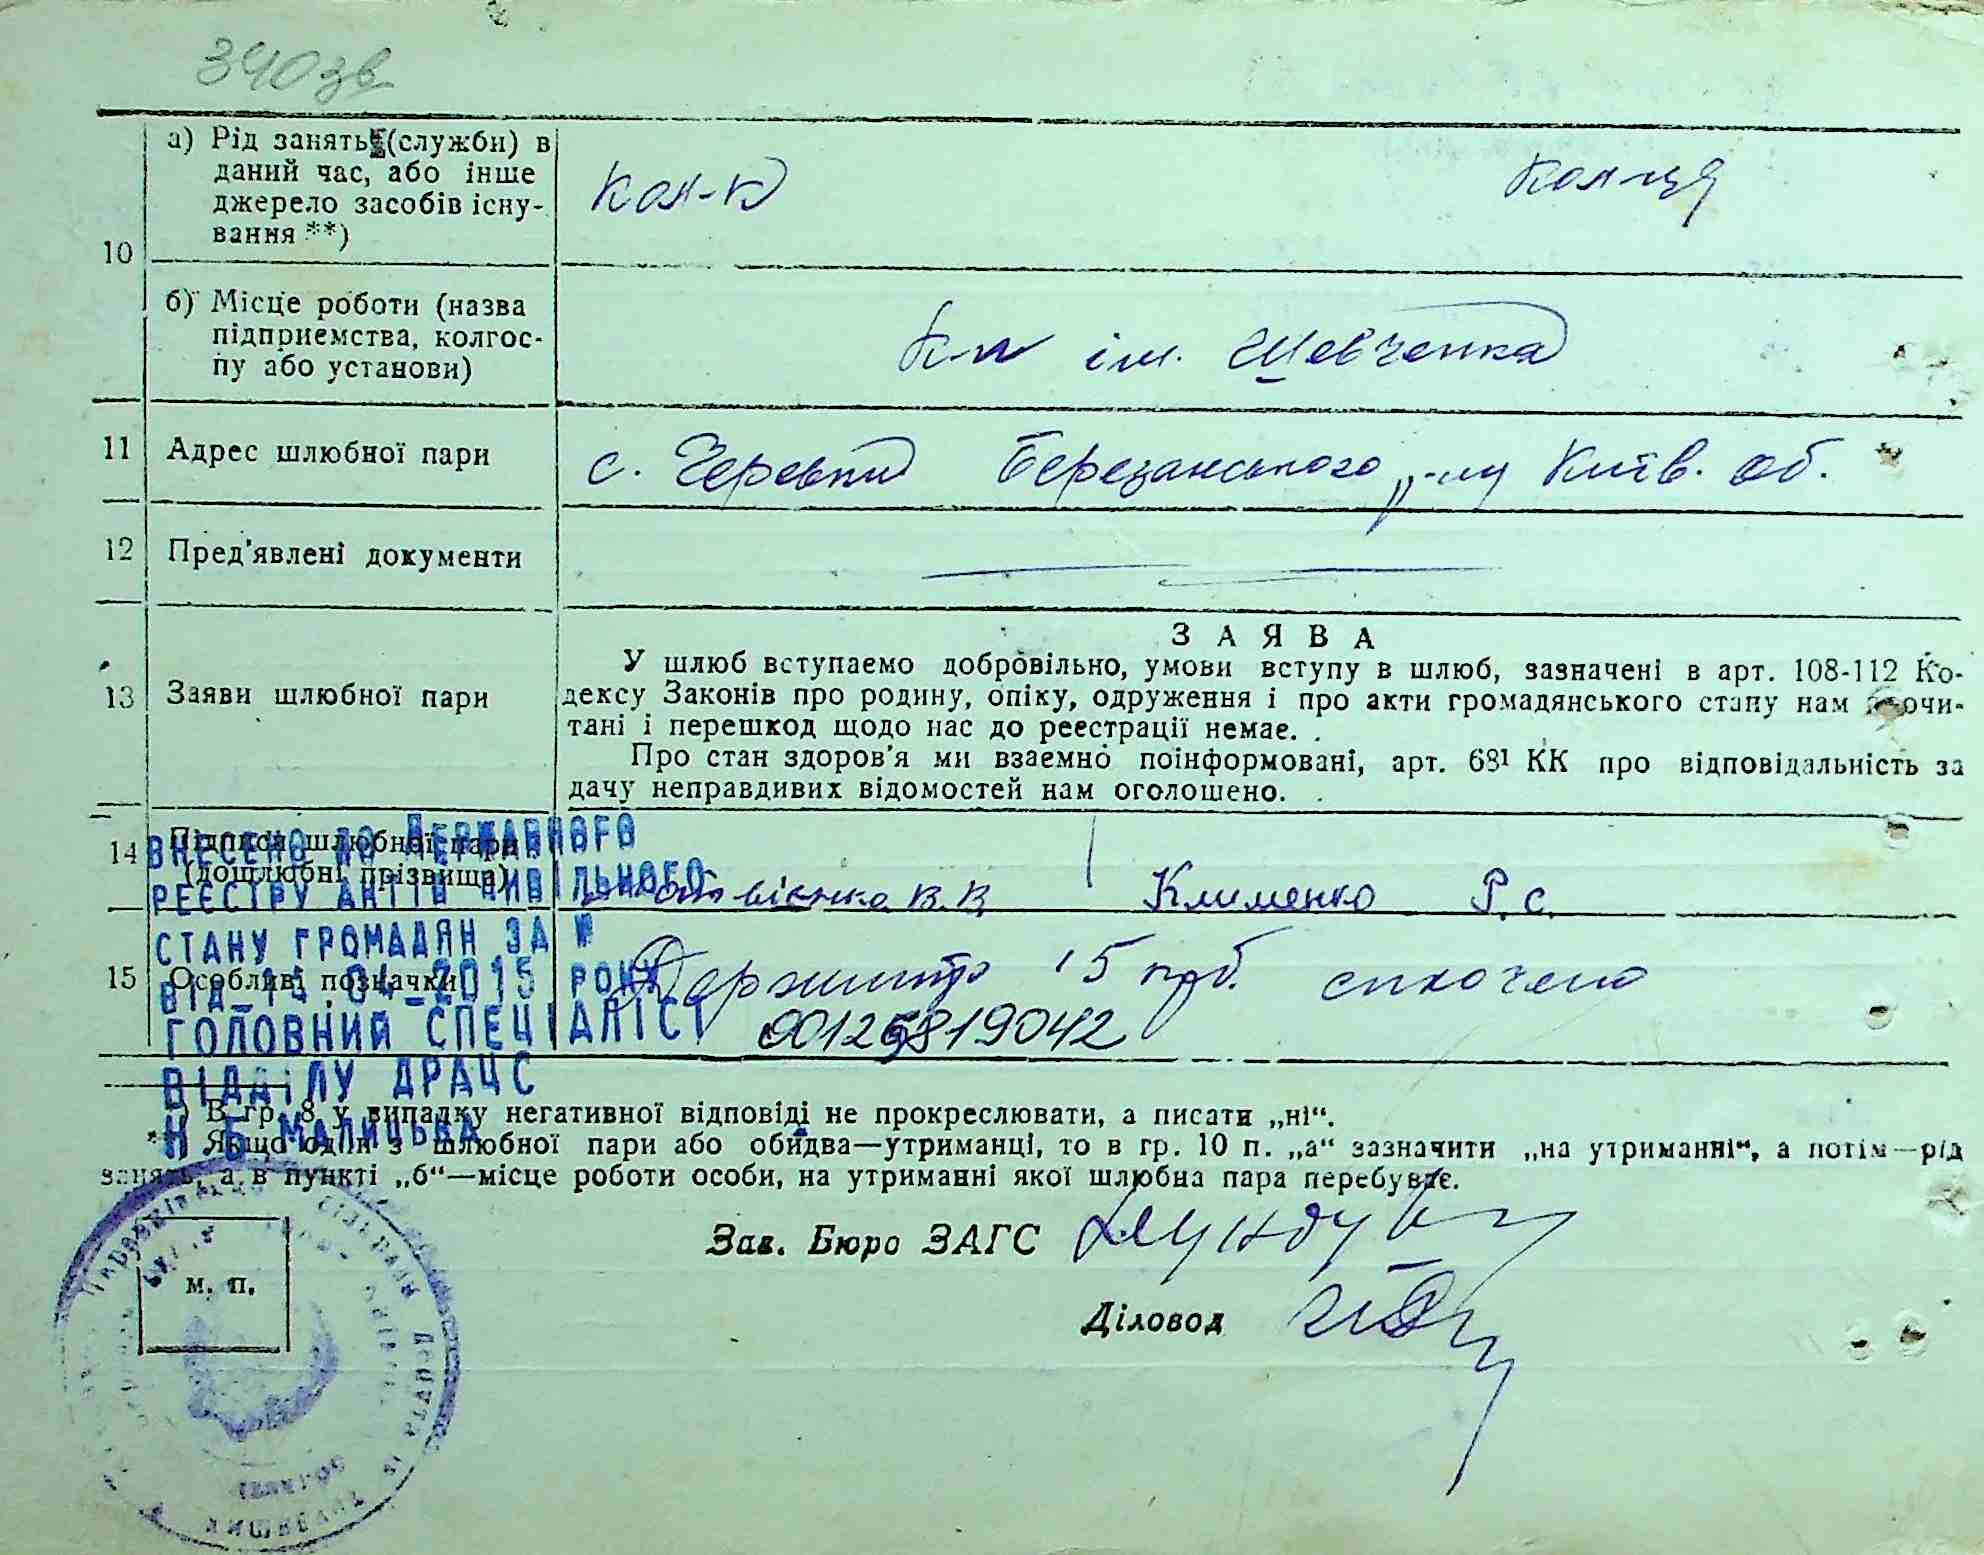 340 зв
а) Рід занять (служби) в
даний час, або інше
джерело засобів існу-
вання **)
10
кол-к
кол-ця
б) Місце роботи (назва
підприємства, колгос-
пу або установи)
к-п ім. Шевченка
11 Адрес шлюбної пари
с. Черевки Березанського р-ну Київ. об.
12 Пред'явлені документи
13 Заяви шлюбної пари
ЗАЯВА
У шлюб вступаємо добровільно, умови вступу в шлюб, зазначені в арт. 108-112 Ко-
дексу Законів про родину, опіку, одруження і про акти громадянського стану нам прочи-
тані і перешкод щодо нас до реєстрації немає.
Про стан здоров'я ми взаємно поінформовані, арт. 68¹ КК про відповідальність за
дачу неправдивих відомостей нам оголошено.
14 Підписи шлюбної пари
(дошлюбні прізвища)
В. В. Клименко Р. С.
15 Особливі позначки
Держмито 15 крб. сплочено
ВНЕСЕНО ДО ДЕРЖАВНОГО
РЕЄСТРУ АКТІВ ЦИВІЛЬНОГО
СТАНУ ГРОМАДЯН ЗА №
ВІД 04 2015 РОКУ
ГОЛОВНИЙ СПЕЦІАЛІСТ
ВІДДІЛУ ДРАЦС
*) В гр. 8 у випадку негативної відповіді не прокреслювати, а писати „ні“.
**) Якщо один з шлюбної пари або обидва—утриманці, то в гр. 10 п. „а“ зазначити „на утриманні“, а потім—рід
занять, а в пункті „б“—місце роботи особи, на утриманні якої шлюбна пара перебуває.
Зав. Бюро ЗАГС
м. п.
Діловод